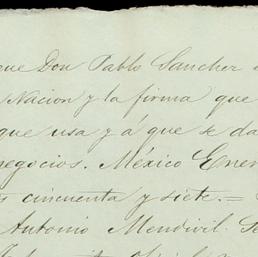 que Don Pablo Sanchez
Nacion y la firma que
que usa y á que se da
negocios. México Ener
cincuenta y siete.=
Antonio Mendivil.